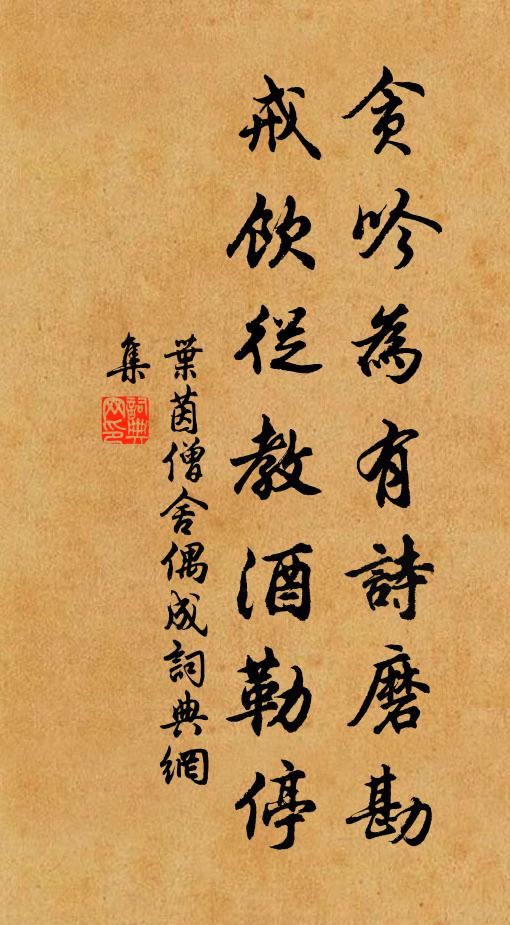 貪吟為有詩磨勘
戒飲從教酒勒停
葉茵僧舍偶成詞典網
集
詞典網印